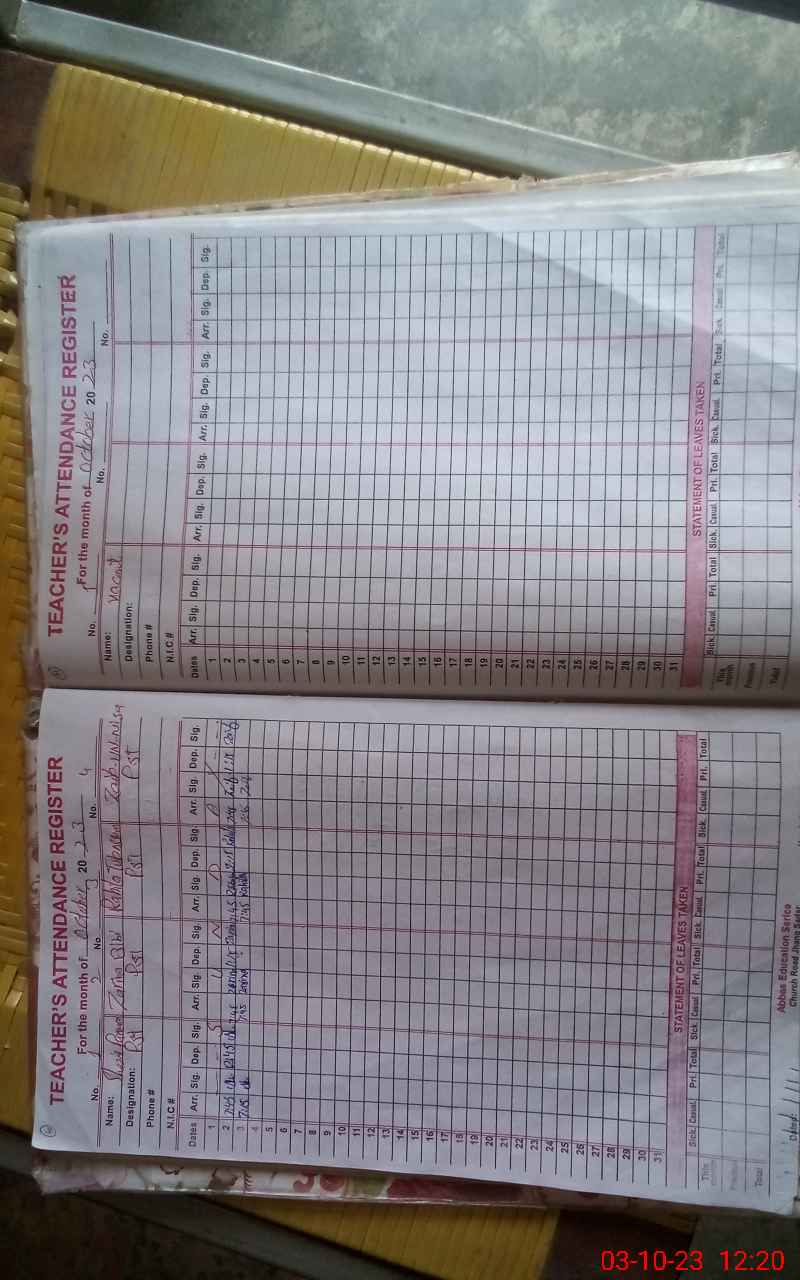 TEACHER'S ATTENDANCE REGISTER
For the month of October 20 23
No. 1 2 No. 3 No. 4
Name: Zarina Bibi
Designation: Pst Pst Pst Pst
Phone #
N.I.C #
Dates Arr. Sig. Dep. Sig. Arr. Sig. Dep. Sig. Arr. Sig. Dep. Sig. Arr. Sig. Dep. Sig.
1 S U N D A Y
2 7:45 7:45 7:45 7:45
3 7:45 7:45 7:45 7:45
4
5
6
7
8
9
10
11
12
13
14
15
16
17
18
19
20
21
22
23
24
25
26
27
28
29
30
31
STATEMENT OF LEAVES TAKEN
Sick Casual Pri. Total Sick Casual Pri. Total Sick Casual Pri. Total Sick Casual Pri. Total
This month
Previous
Total
Abbas Education Serice
Church Road Jhang Sadar
Dated:
TEACHER'S ATTENDANCE REGISTER
For the month of October 20 23
No. No. No.
Name: Vacant
Designation:
Phone #
N.I.C #
Dates Arr. Sig. Dep. Sig. Arr. Sig. Dep. Sig. Arr. Sig. Dep. Sig. Arr. Sig. Dep. Sig.
1
2
3
4
5
6
7
8
9
10
11
12
13
14
15
16
17
18
19
20
21
22
23
24
25
26
27
28
29
30
31
STATEMENT OF LEAVES TAKEN
Sick Casual Pri. Total Sick Casual Pri. Total Sick Casual Pri. Total Sick Casual Pri. Total
This month
Previous
Total
03-10-23 12:20